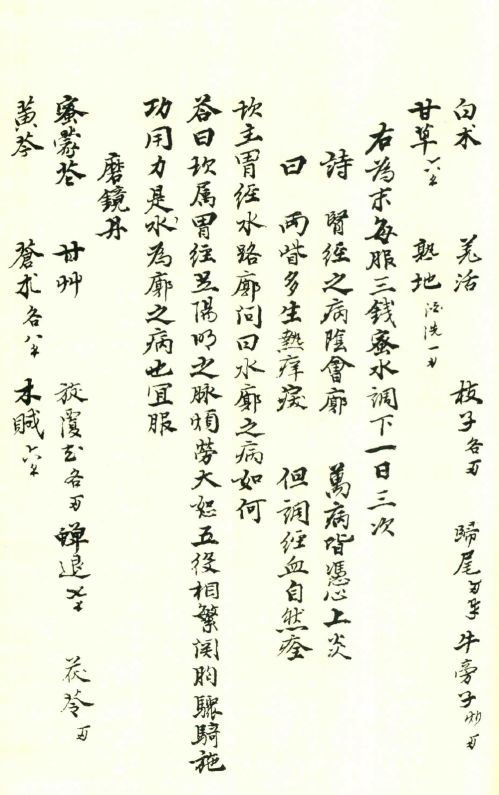 白术 羌活 枝子各両 歸尾両半 牛旁子炒両
甘草六戋 熟地酒洗一両
右為末每服三錢蜜水調下一日三次
詩 腎經之病陰會廓 萬病皆憑心上炎
曰 両眥多生熱痒痰 但調經血自然痊
坎主胃經水路廓问曰水廓之病如何
荅曰坎属胃經足陽明之脉煩勞大怒五役相繁関朐驟騎施
功用力是水為廓之病也宜服
磨鏡丹
蜜蒙花 甘艸 旋覆花各両 蟬退七戋 茯苓両
黄芩 蒼朮各八戋 木賊六戋